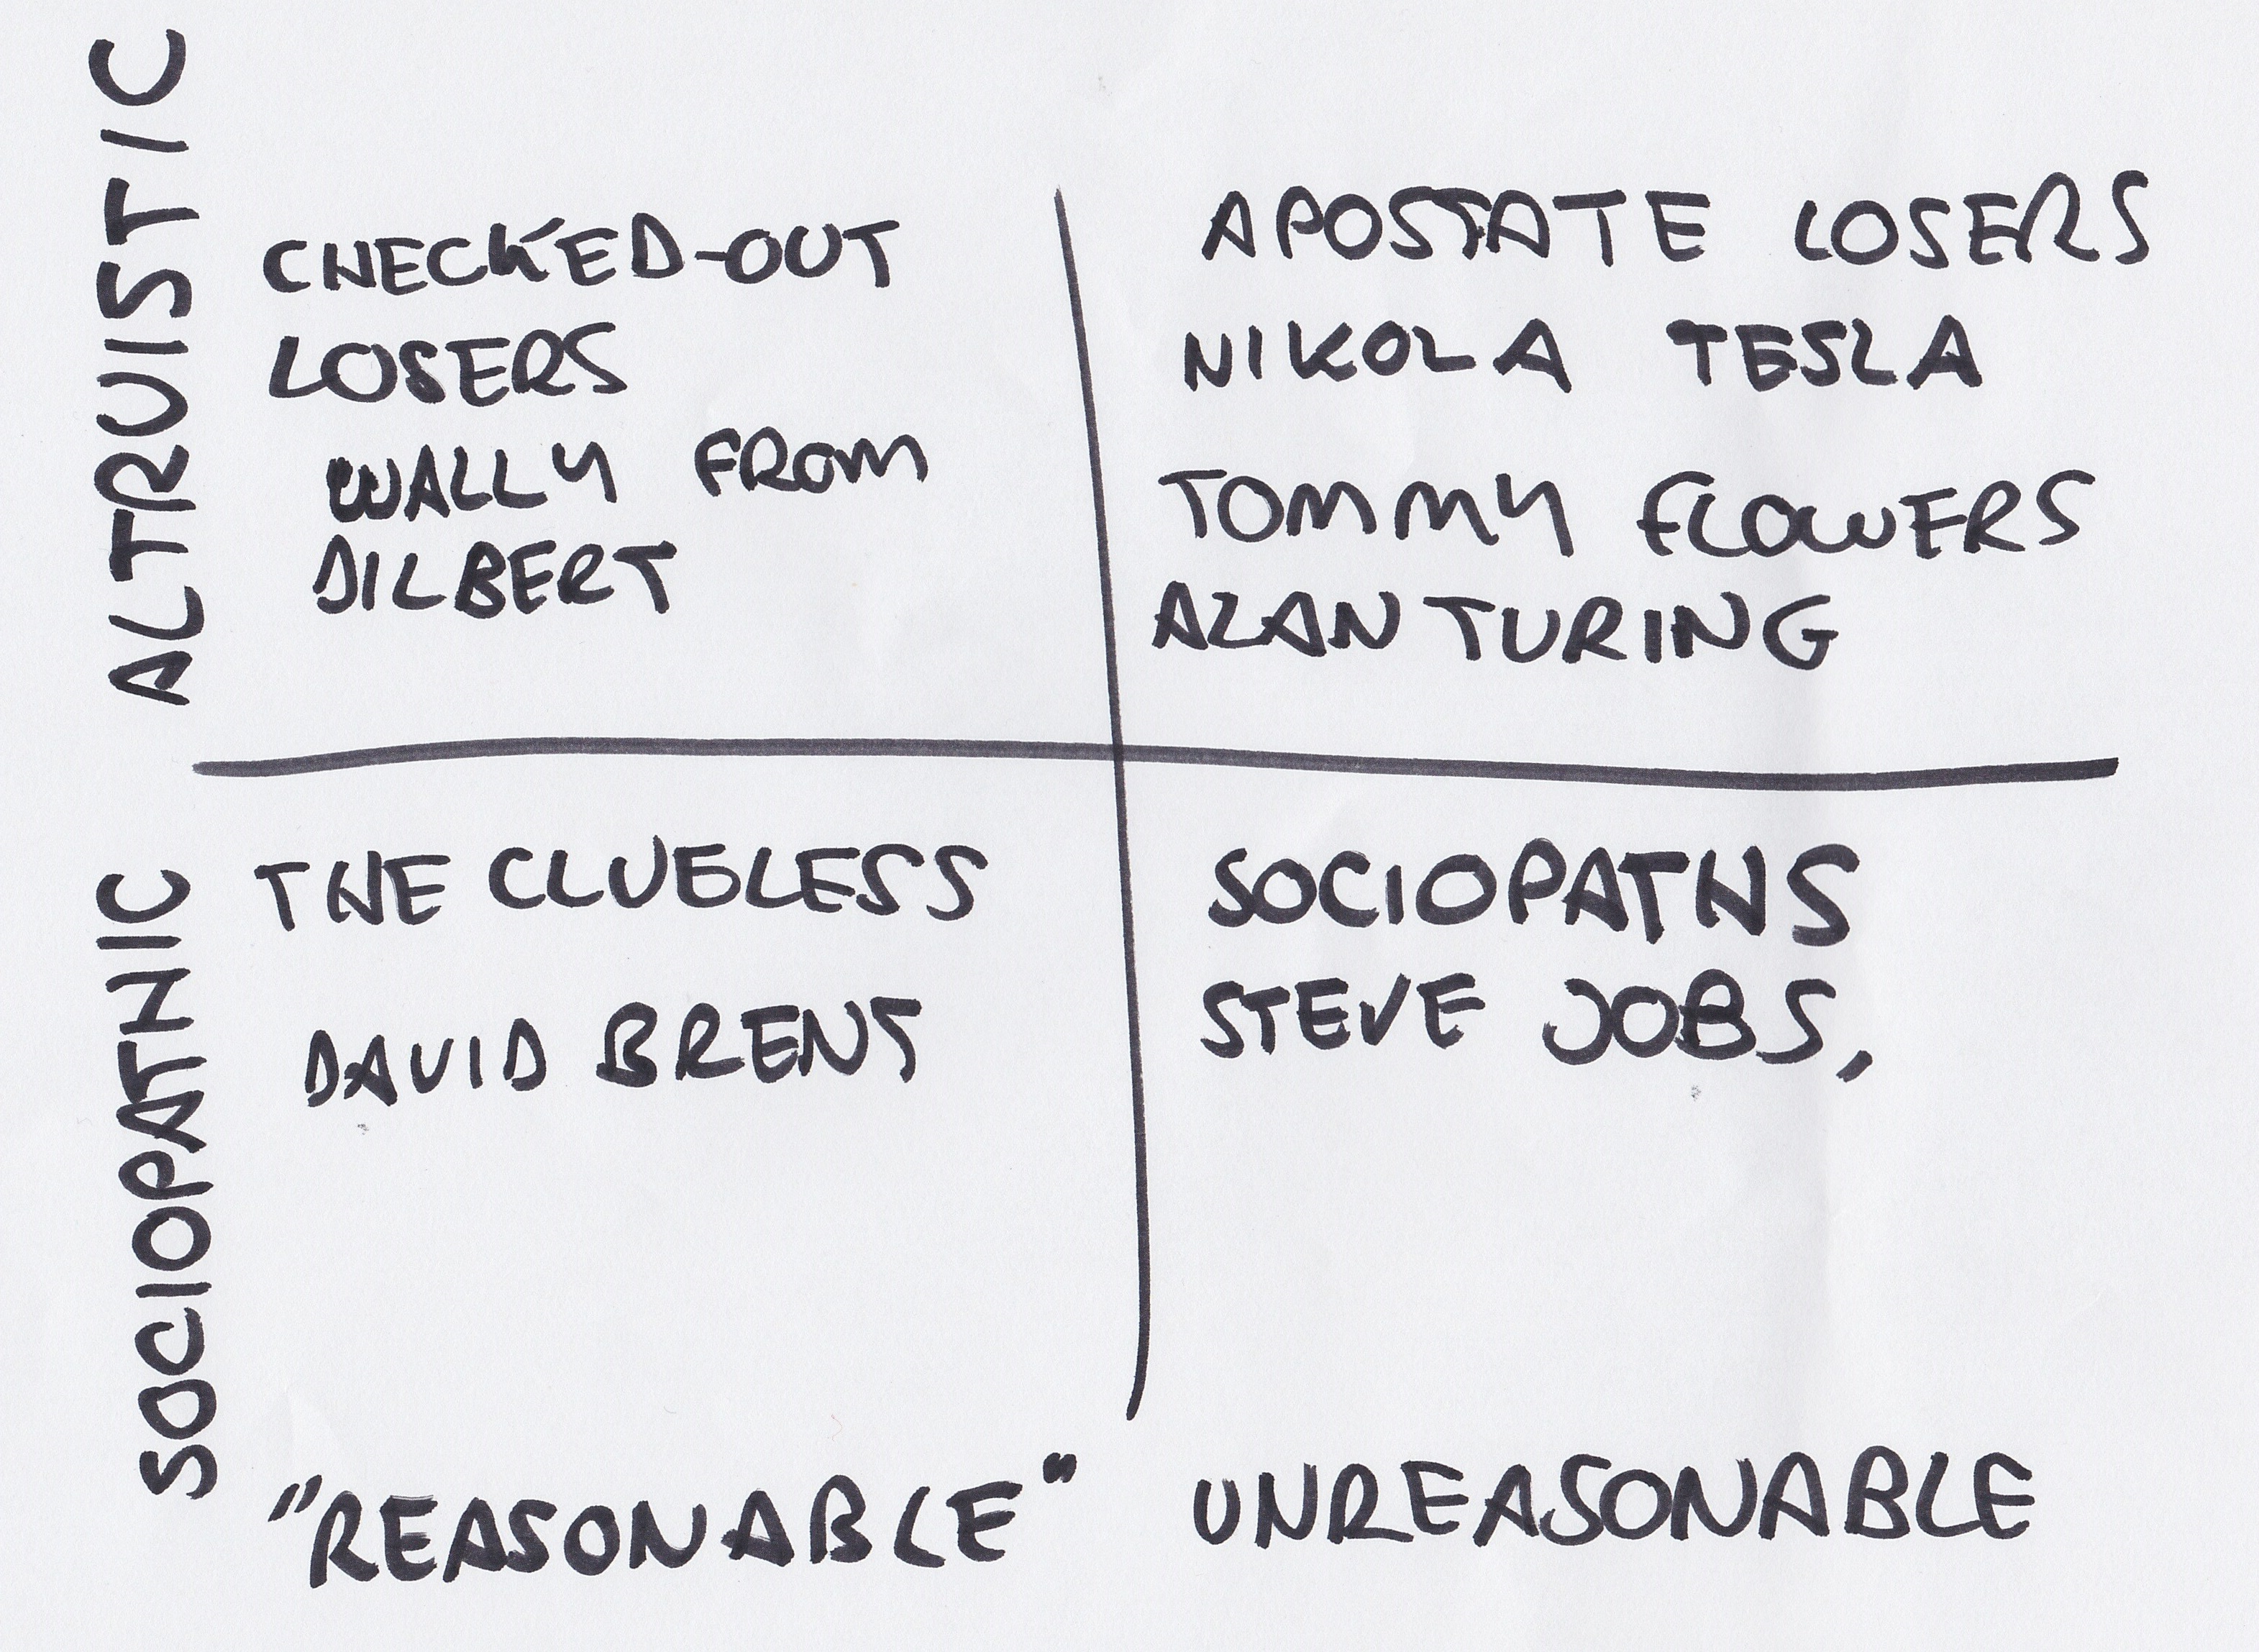 ALTRUISTIC
CHECKED-OUT
LOSERS
WALLY FROM
DILBERT
APOSTATE LOSERS
NIKOLA TESLA
TOMMY FLOWERS
ALAN TURING
SOCIOPATHIC
THE CLUELESS
DAVID BRENT
SOCIOPATHS
STEVE JOBS,
"REASONABLE"
UNREASONABLE